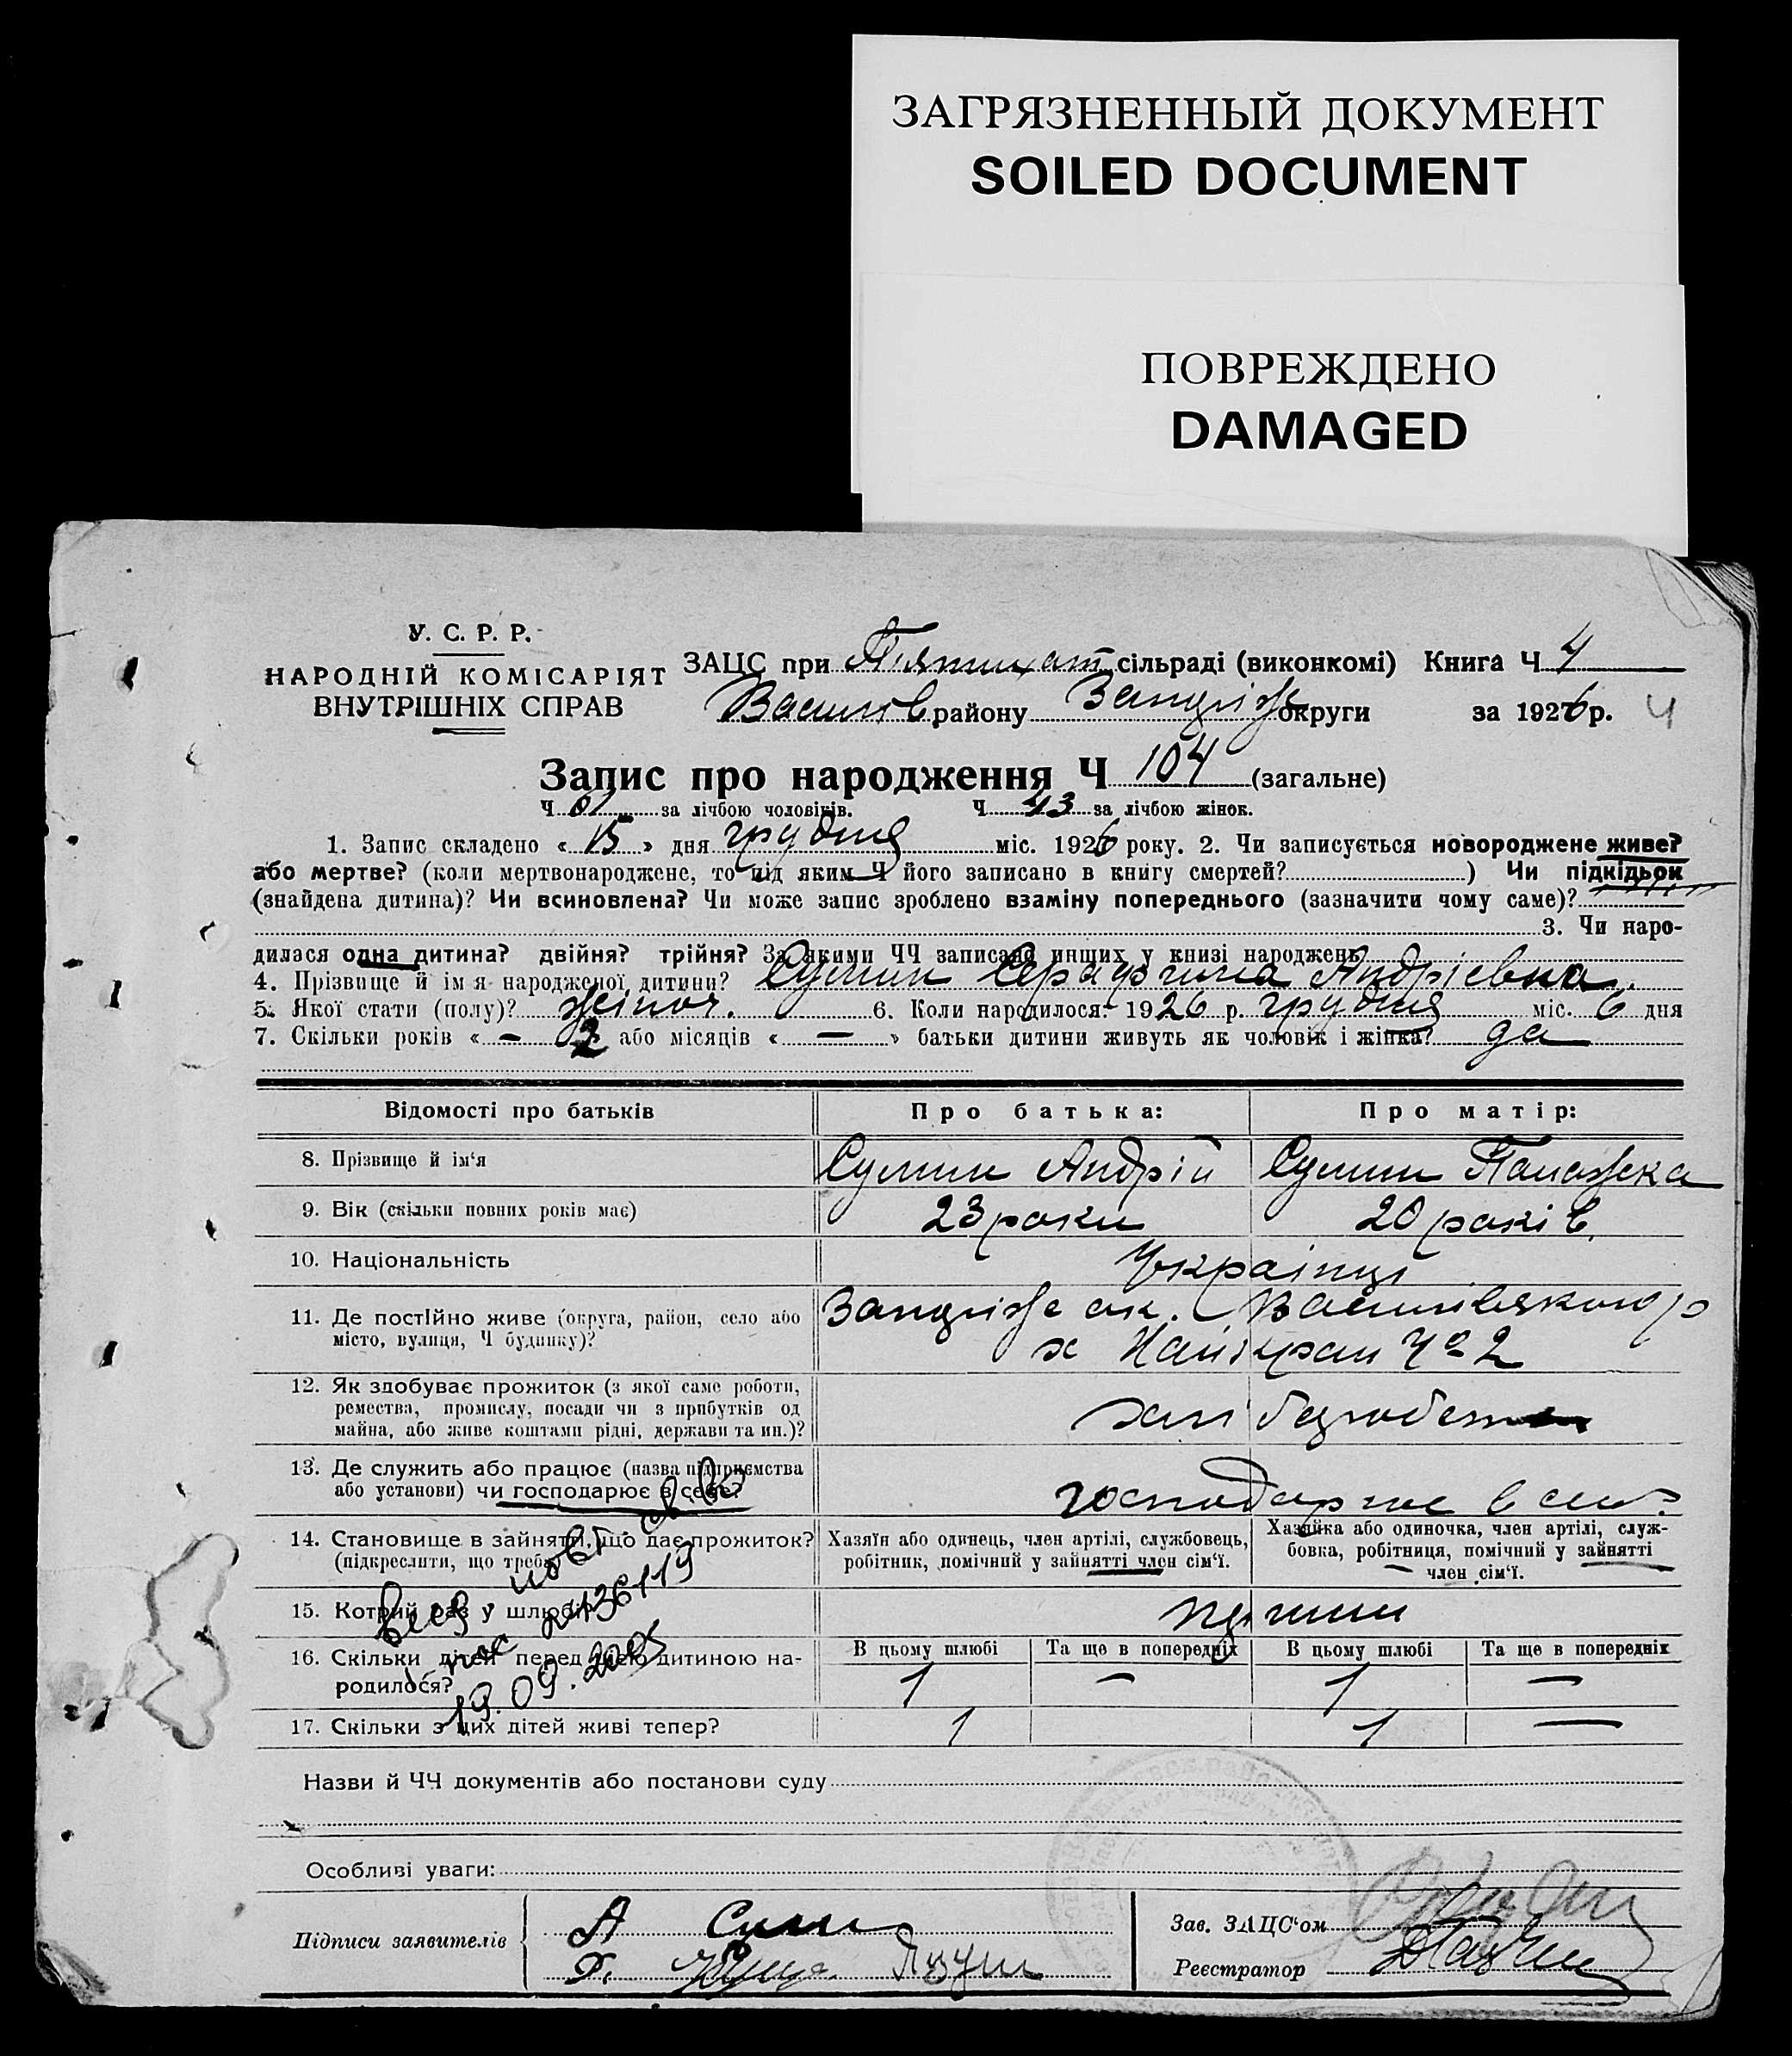 ЗАГРЯЗНЕННЫЙ ДОКУМЕНТ
SOILED DOCUMENT
ПОВРЕЖДЕНО
DAMAGED
У. С. Р. Р.
НАРОДНІЙ КОМІСАРІЯТ
ВНУТРІШНІХ СПРАВ
ЗАЦС при Пятихат сільраді (виконкомі) Книга Ч 4
Василів району Запоріж округи за 1926 р. 4
Запис про народження Ч 104 (загальне)
Ч 61 за лічбою чоловіків. Ч 43 за лічбою жінок.
1. Запис складено « 15 » дня грудня міс. 1926 року. 2. Чи записується новороджене живе?
або мертве? (коли мертвонароджене, то під яким Ч його записано в книгу смертей? ) Чи підкідьок
(знайдена дитина)? Чи всиновлена? Чи може запис зроблено взаміну попереднього (зазначити чому саме)?
3. Чи наро-
дилася одна дитина? двійня? трійня? За якими ЧЧ записано инших у книзі народжень
4. Прізвище й ім'я народженої дитини? Сулим Серафима Андріевна.
5. Якої стати (полу)? жіноч. 6. Коли народилося: 1926 р. грудня міс. 6 дня
7. Скільки років « – 2 або місяців « — » батьки дитини живуть як чоловік і жінка? да
Відомості про батьків
Про батька:
Про матір:
8. Прізвище й ім'я
Сулим Андрій
Сулим Панажка
9. Вік (скільки повних років має)
23 роки
20 років.
10. Національність
Українці
11. Де постійно живе (округа, район, село або
місто, вулиця, Ч будинку)?
Запоріж ок. Василівського р
х Ч° 2
12. Як здобуває прожиток (з якої саме роботи,
ремества, промислу, посади чи з прибутків од
майна, або живе коштами рідні, держави та ин.)?
13. Де служить або працює (назва підприємства
або установи) чи господарює в себе?
господарює в
14. Становище в зайнятті, що дає прожиток?
(підкреслити, що треба)
Хазяїн або одинець, член артілі, службовець,
робітник, помічний у зайнятті член сім'ї.
Хазяйка або одиночка, член артілі, служ-
бовка, робітниця, помічний у зайнятті
член сім'ї.
15. Котрий раз у шлюбі?
16. Скільки дітей перед цією дитиною на-
родилося?
В цьому шлюбі
Та ще в попередніх
В цьому шлюбі
Та ще в попередніх
1 – 1 —
17. Скільки з цих дітей живі тепер?
1 1 —
повт. св. во
2436119
19.09.2005
Назви й ЧЧ документів або постанови суду
Особливі уваги:
Підписи заявителів
А Сулим
Зав. ЗАЦС'ом
Реєстратор